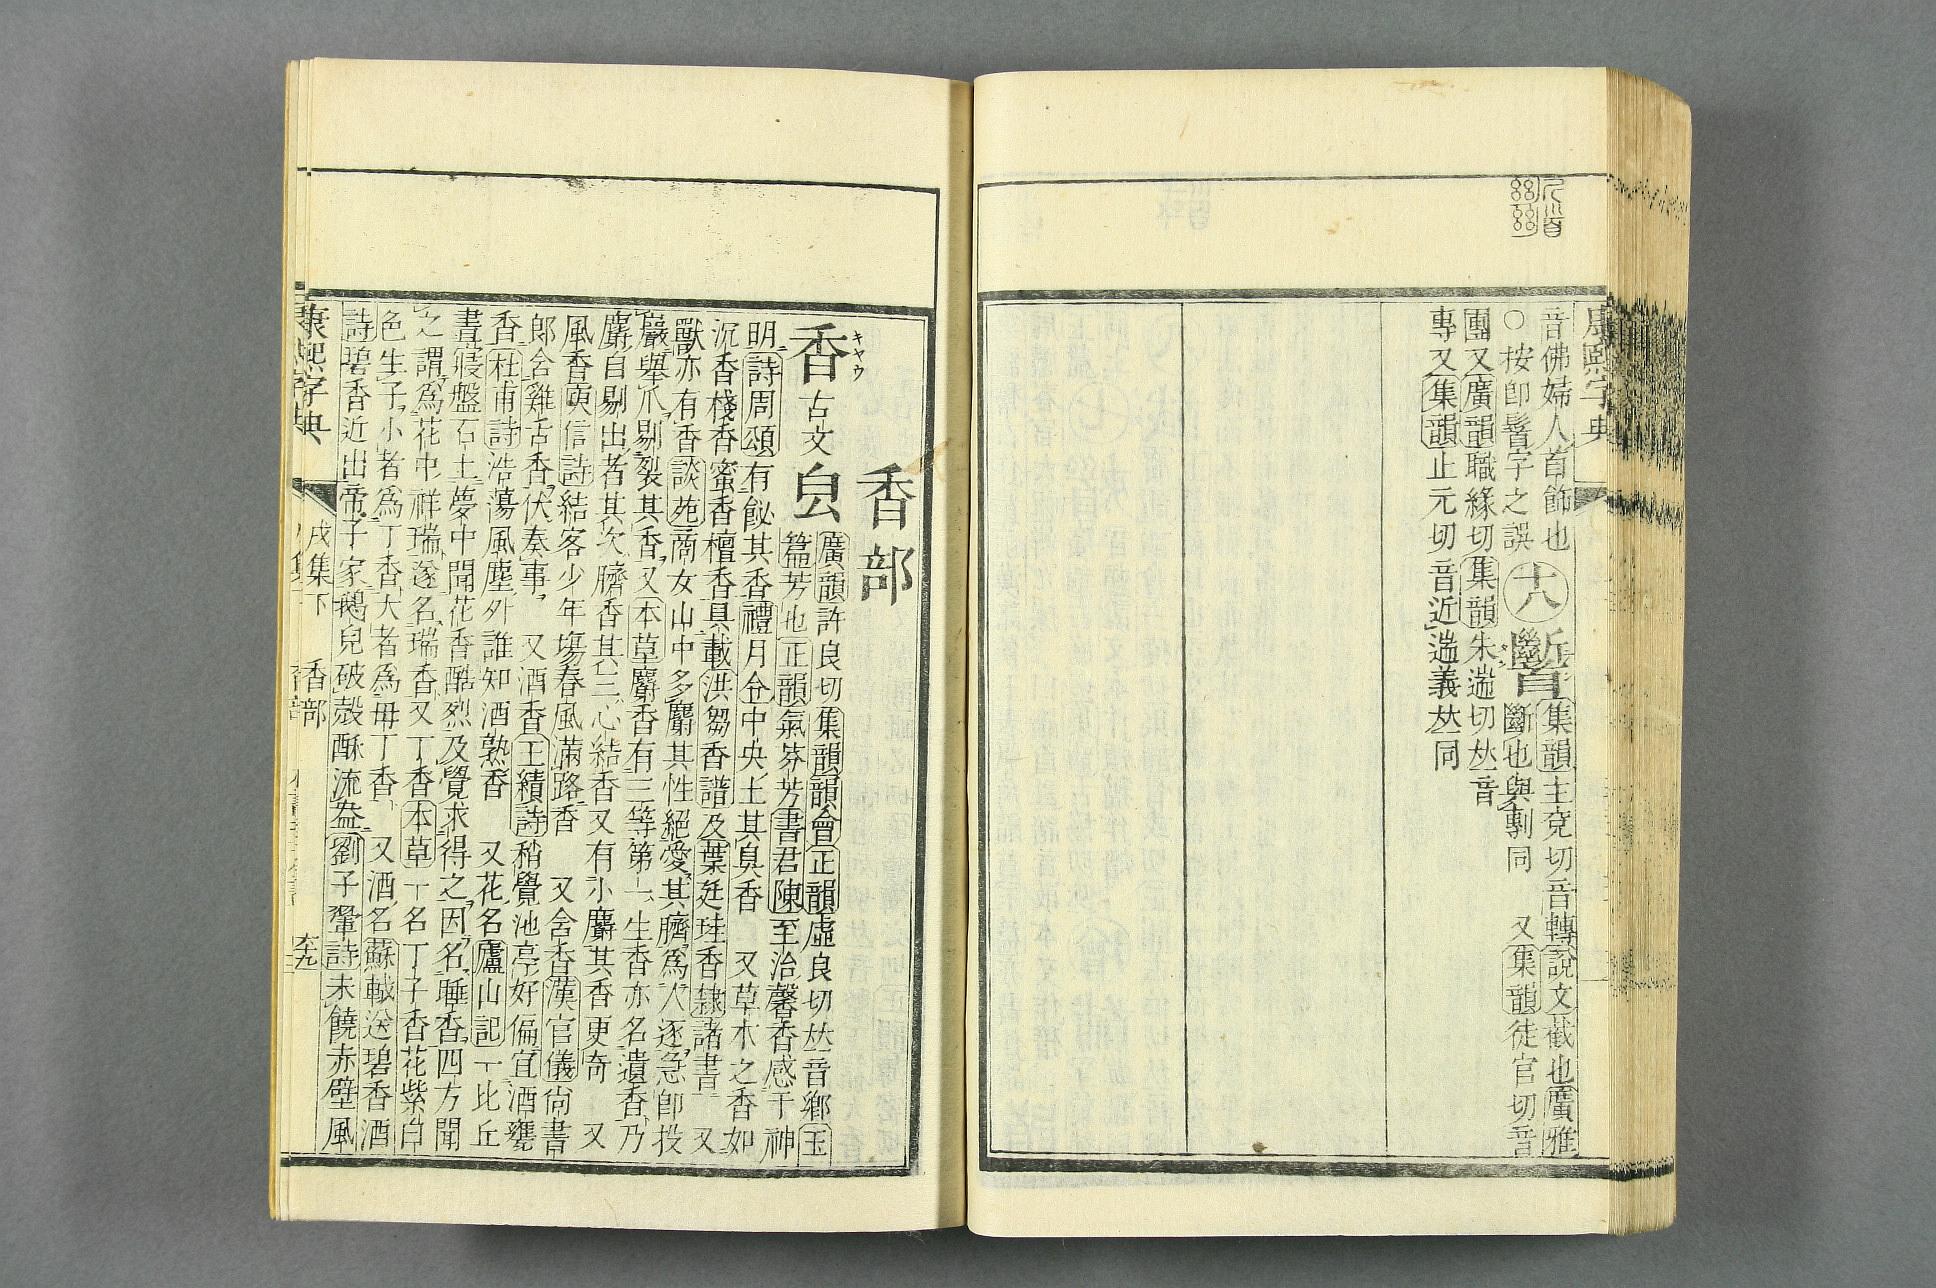 康熙字典
音佛婦人首飾也
○按卽髻字之誤 十八 𩠹 集韻主兗切音轉說文截也廣雅
斷也與剸同 又集韻徒官切音
團又廣韻職緣切集韻朱遄切𠀤音
專又集韻止元切音近遄義𠀤同
香部
香 キヤウ 古文 𦤀 廣韻許良切集韻韻會正韻虛良切𠀤音鄕玉
篇芳也正韻氣芬芳書君陳至治馨香感于神
明詩周頌有飶其香禮月令中央土其臭香 又草木之香如
沉香棧香蜜香檀香具載洪芻香譜及葉廷珪香隸諸書 又
獸亦有香談苑商女山中多麝其性絕愛其臍爲人逐急卽投
巖舉爪剔裂其香又本草麝香有三等第一生香亦名遺香乃
麝自剔出者其次臍香其三心結香又有小麝其香更奇 又
風香庾信詩結客少年塲春風滿路香 又舍香漢官儀尙書
郎含雞舌香伏奏事 又酒香王績詩稍覺池亭好偏宜酒甕
香杜甫詩浩蕩風塵外誰知酒熟香 又花名廬山記一比丘
晝寢盤石上夢中聞花香酷烈及覺求得之因名睡香四方聞
之謂爲花中祥瑞遂名瑞香又丁香本草一名丁子香花紫白
色生子小者爲丁香大者爲母丁香 又酒名蘇軾送碧香酒
詩碧香近出帝子家鵝兒破殼酥流盎劉子翬詩未饒赤壁風
康熙字典 戌集下 香部